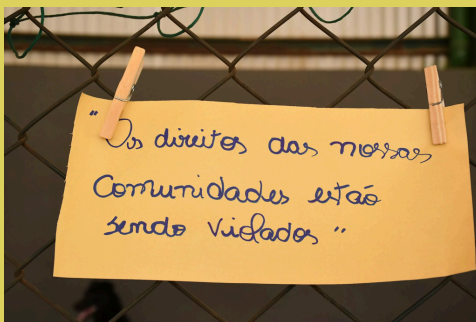 "Os direitos das nossas
Comunidades estão
sendo violados"